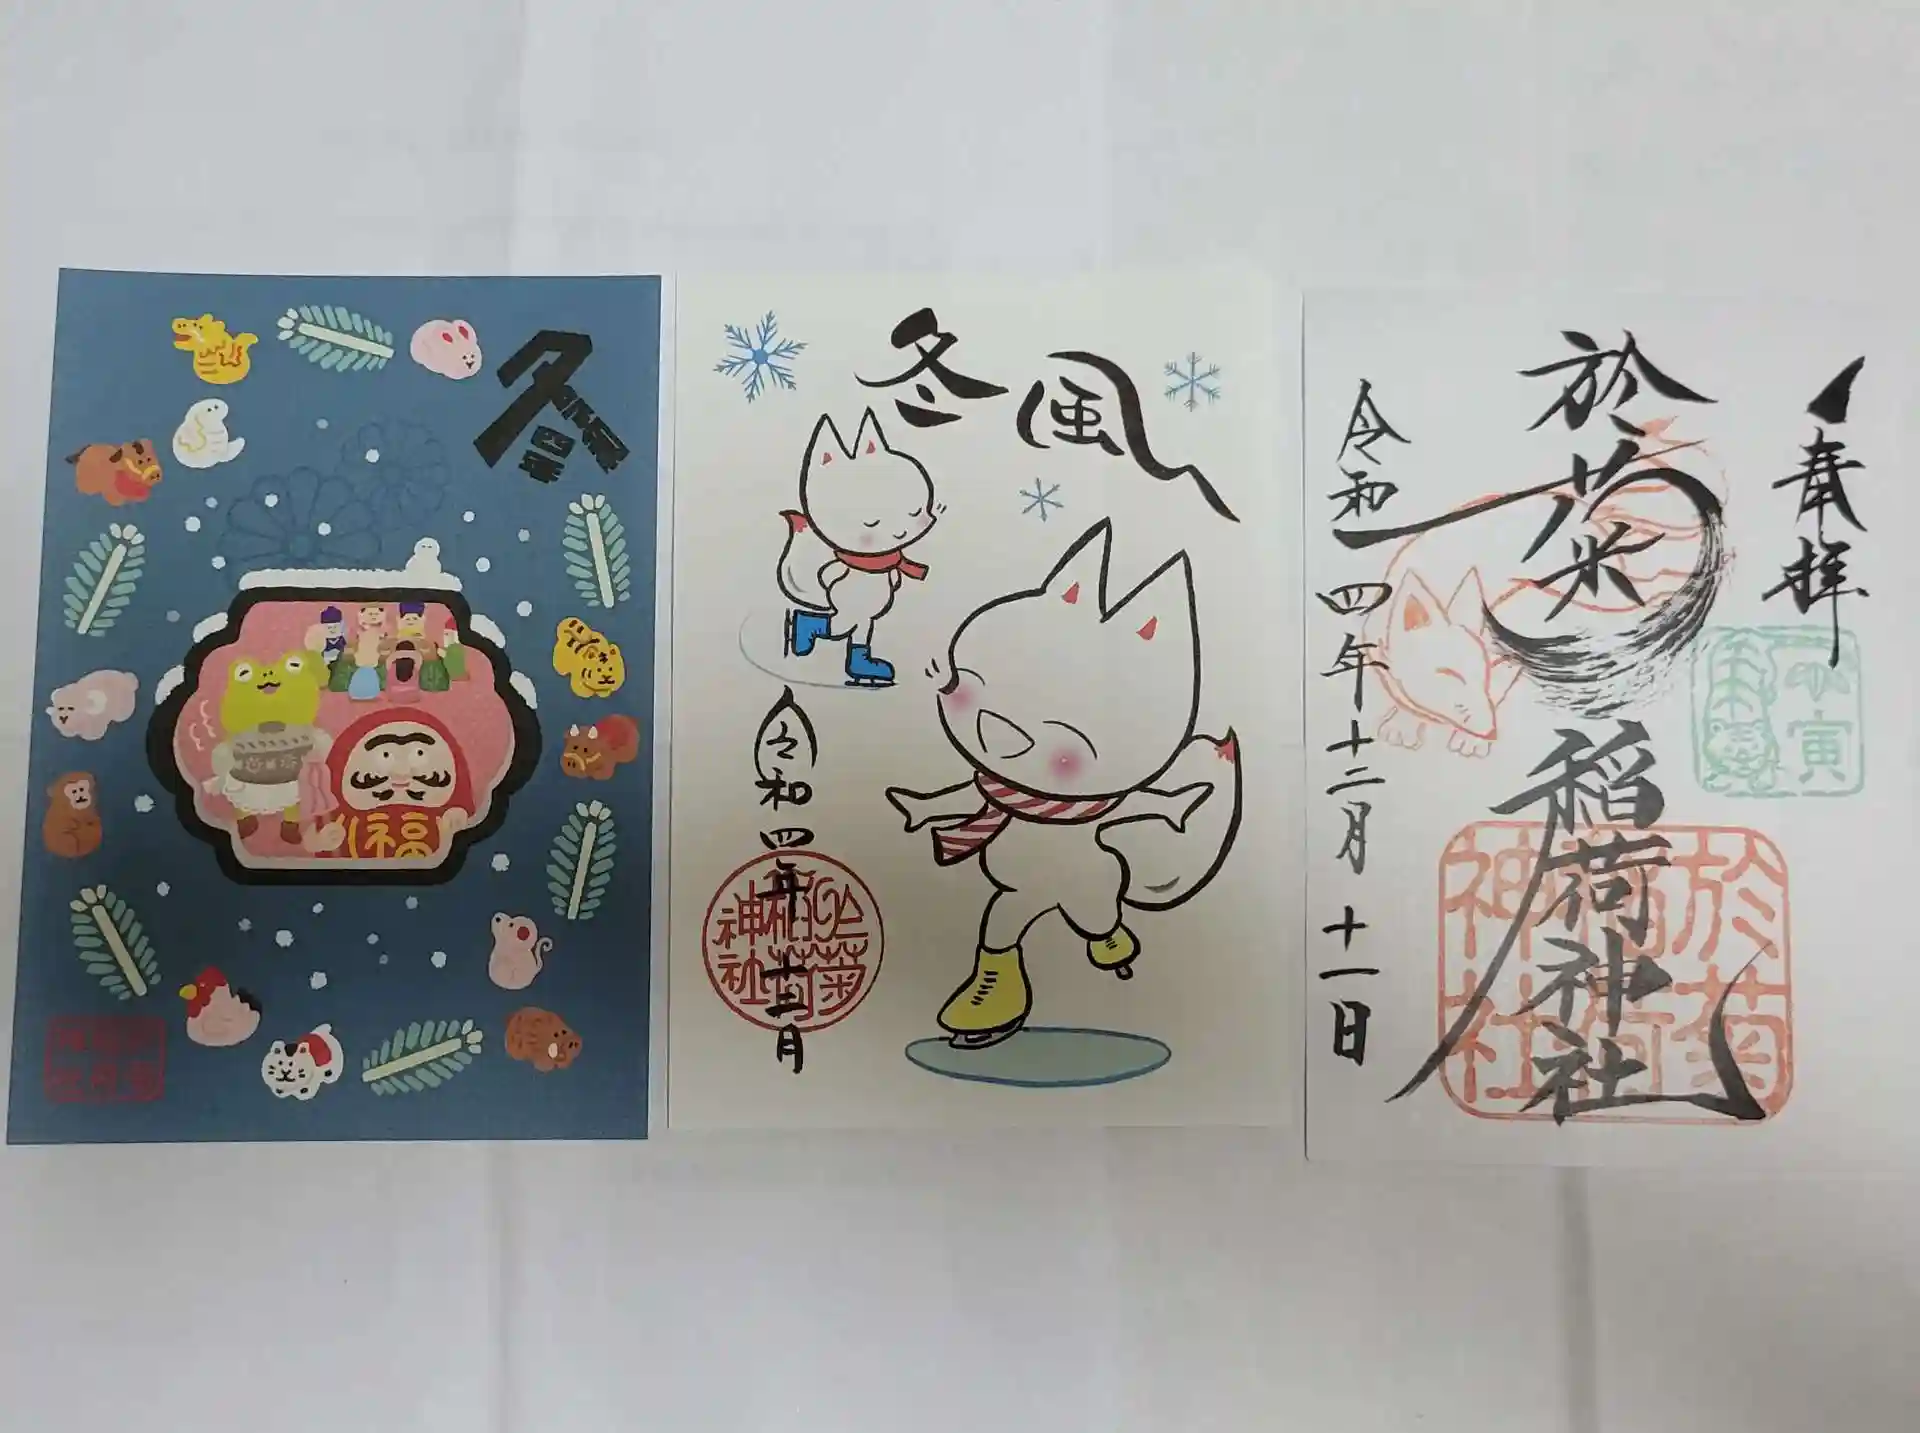 冬
福
冬風
令和四年十二月
於菊稲荷神社
奉拝
於菊
稲荷神社
令和四年十二月十一日
寅
於菊稲荷神社